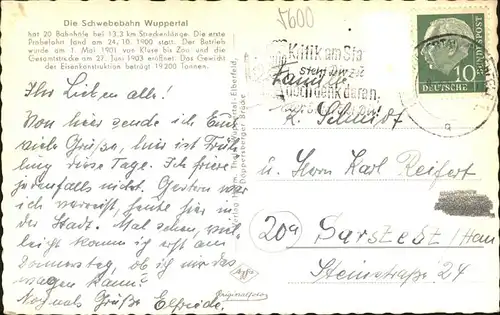 Die Schwebebahn Wuppertal
hat 20 Bahnhöfe bei 13,3 km Streckenlänge. Die erste
Probefahrt fand am 24. 10. 1900 statt. Der Betrieb
wurde am 1. Mai 1901 von Kluse bis Zoo und die
Gesamtstrecke am 27. Juni 1903 eröffnet. Das Gewicht
der Eisenkonstruktion beträgt 19 200 Tonnen.
Ihr Lieben alle!
Von hier sende ich Euch
viele Grüße, hier ist Früh-
ling diese Tage. Ich friere
jedenfalls nicht. Gestern war
ich verreist, heute hier in
der Stadt. Mal sehen, viel-
leicht komm ich erst am
Donnerstag, ob ich mir das
wagen kann?
Nochmals Grüße Elfriede.
Wuppertal-Elberfeld,
Döppersberger Brücke
Agfa
Originalfoto
5600
Kritik am
noch denk daran,
DEUTSCHE BUNDESPOST
10
Familie
K. Schmidt
u. Herrn Karl Reifert
20a Sarstedt/Han
Steinstraße 24